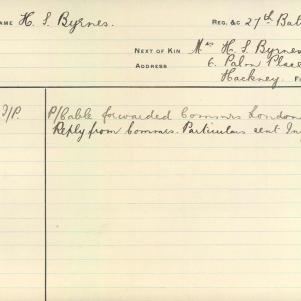 NAME H. S. Byrnes. REG. &C 27th Bat
NEXT OF KIN Mrs H. S. Byrnes
ADDRESS 6. Palm Place
Hackney. F
P/Cable forwarded Commrs London
Reply from Commrs. Particulars sent In